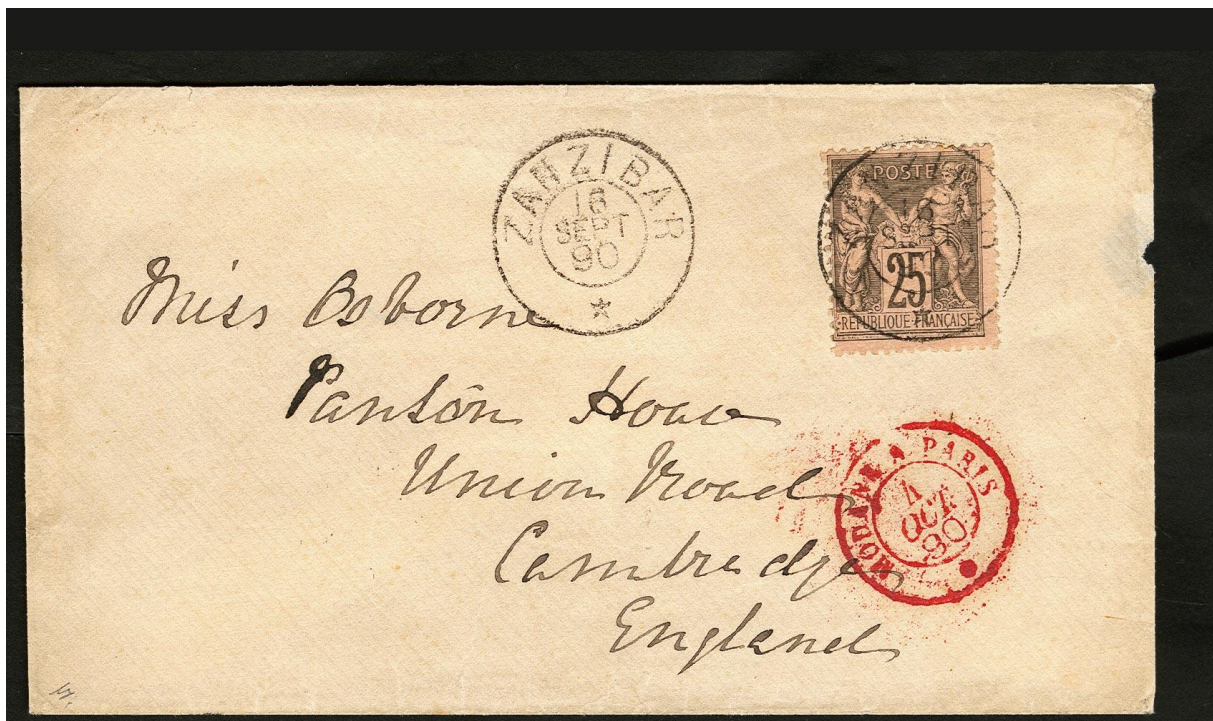 ZANZIBAR
16
SEPT
90
POSTE
25
REPUBLIQUE FRANÇAISE
Miss Osborne
Panton House
Union Road
Cambridge
England
MODANE A PARIS
4
OCT
90